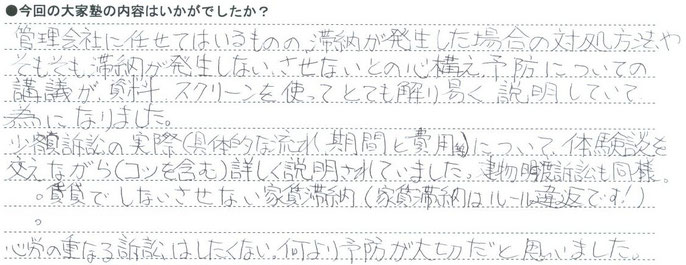 ●今回の大家塾の内容はいかがでしたか？
管理会社に任せてはいるものの、滞納が発生した場合の対処方法や
そもそも滞納が発生しない、させないとの心構え、予防についての
講議が、資料 スクリーンを使ってとても解り易く説明していて
為になりました。
少額訴訟の実際(具体的な流れ(期間と費用))について、体験談を
交えながら(コツを含む)詳しく説明されていました。建物明渡訴訟も同様。
。賃貸でしないさせない家賃滞納(家賃滞納はルール違反です!)
。
心労の重なる訴訟はしたくない。何より予防が大切だと思いました。